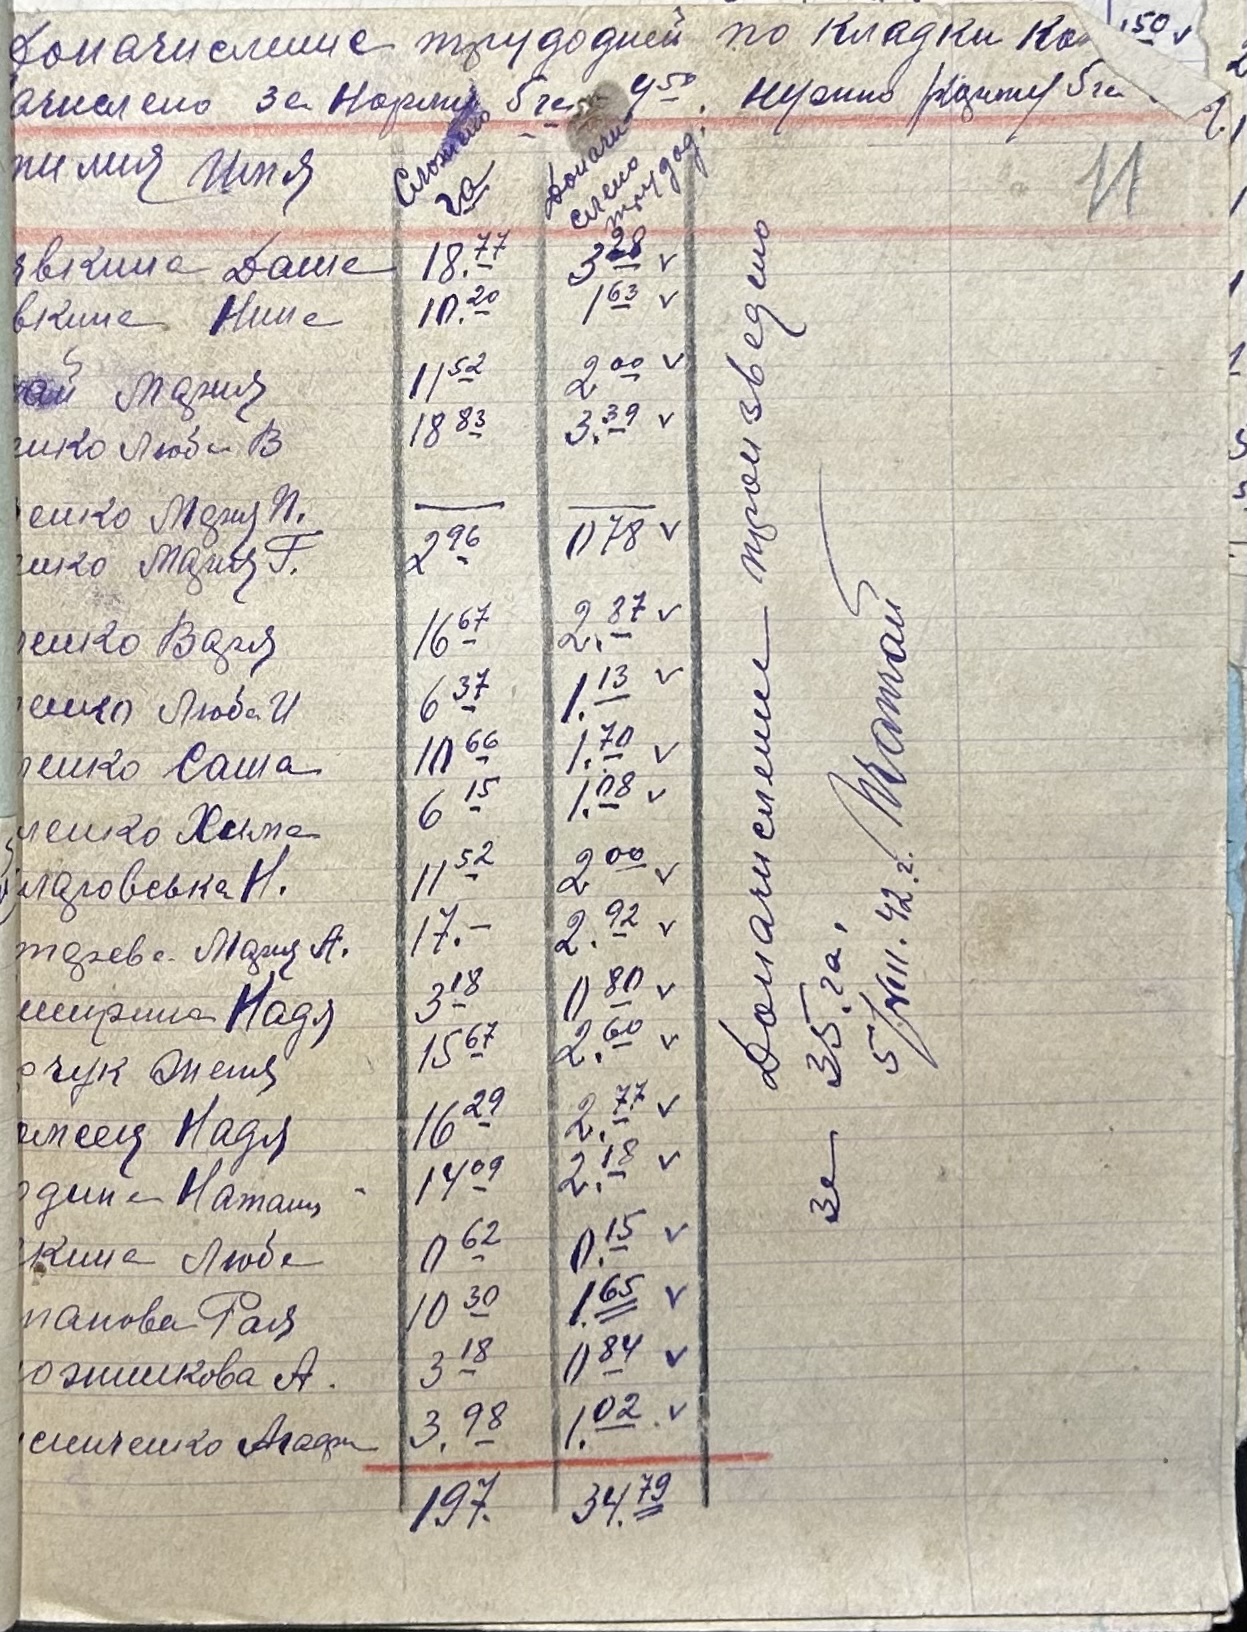 Доначисление трудодней по кладки
50 v
ачислено за норму 5 га 4 50. нужно 5 га
милия Имя
Сложено га
Доначислено трудод.
11
вкина Даша 18.77 3 28 v
вкина Нина 10.20 1 63 v
ай Мария 11 52 2 00 v
енко Люба В 18 83 3.39 v
енко Мария П. — —
енко Мария Г. 2 96 0 78 v
енко Варя 16 67 2.87 v
енко Люба И 6 37 1.13 v
енко Саша 10 66 1.70 v
ленко Хима 6 15 1.08 v
ляровська Н. 11 52 2 00 v
тарева Мария А. 17.– 2.92 v
Надя 3 18 0 80 v
чук Женя 15 67 2.60 v
Надя 16 29 2.77 v
дина Наташ 14 09 2.18 v
кина Люба 0 62 0.15 v
панова Галя 10 30 1.65 v
ожникова А. 3 18 0 84 v
сниченко Агафи 3.98 1.02 v
197. 34.79
Доначисление произведено
за 35 га.
5/VIII. 42 г.